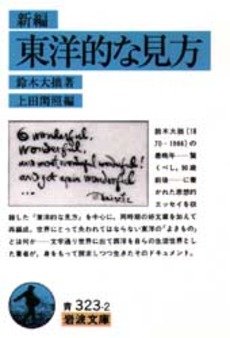 新編
東洋的な見方
鈴木大拙著
上田閑照編
O wonderful,
wonderful,
and most wonderful wonderful!
and yet again wonderful
鈴木大拙(18
70-1966)の
最晩年――驚
くべし,90歳
前後――に書
かれた思想的
エッセイを収
録した『東洋的な見方』を中心に,同時期の好文章を加えて
再編成.世界にとって失われてはならない東洋の「よきもの」
とは何か――文字通り世界に出て西洋を自らの生活世界とし
た著者が,身をもって探求しつつ生きたそのドキュメント.
青323-2
岩波文庫